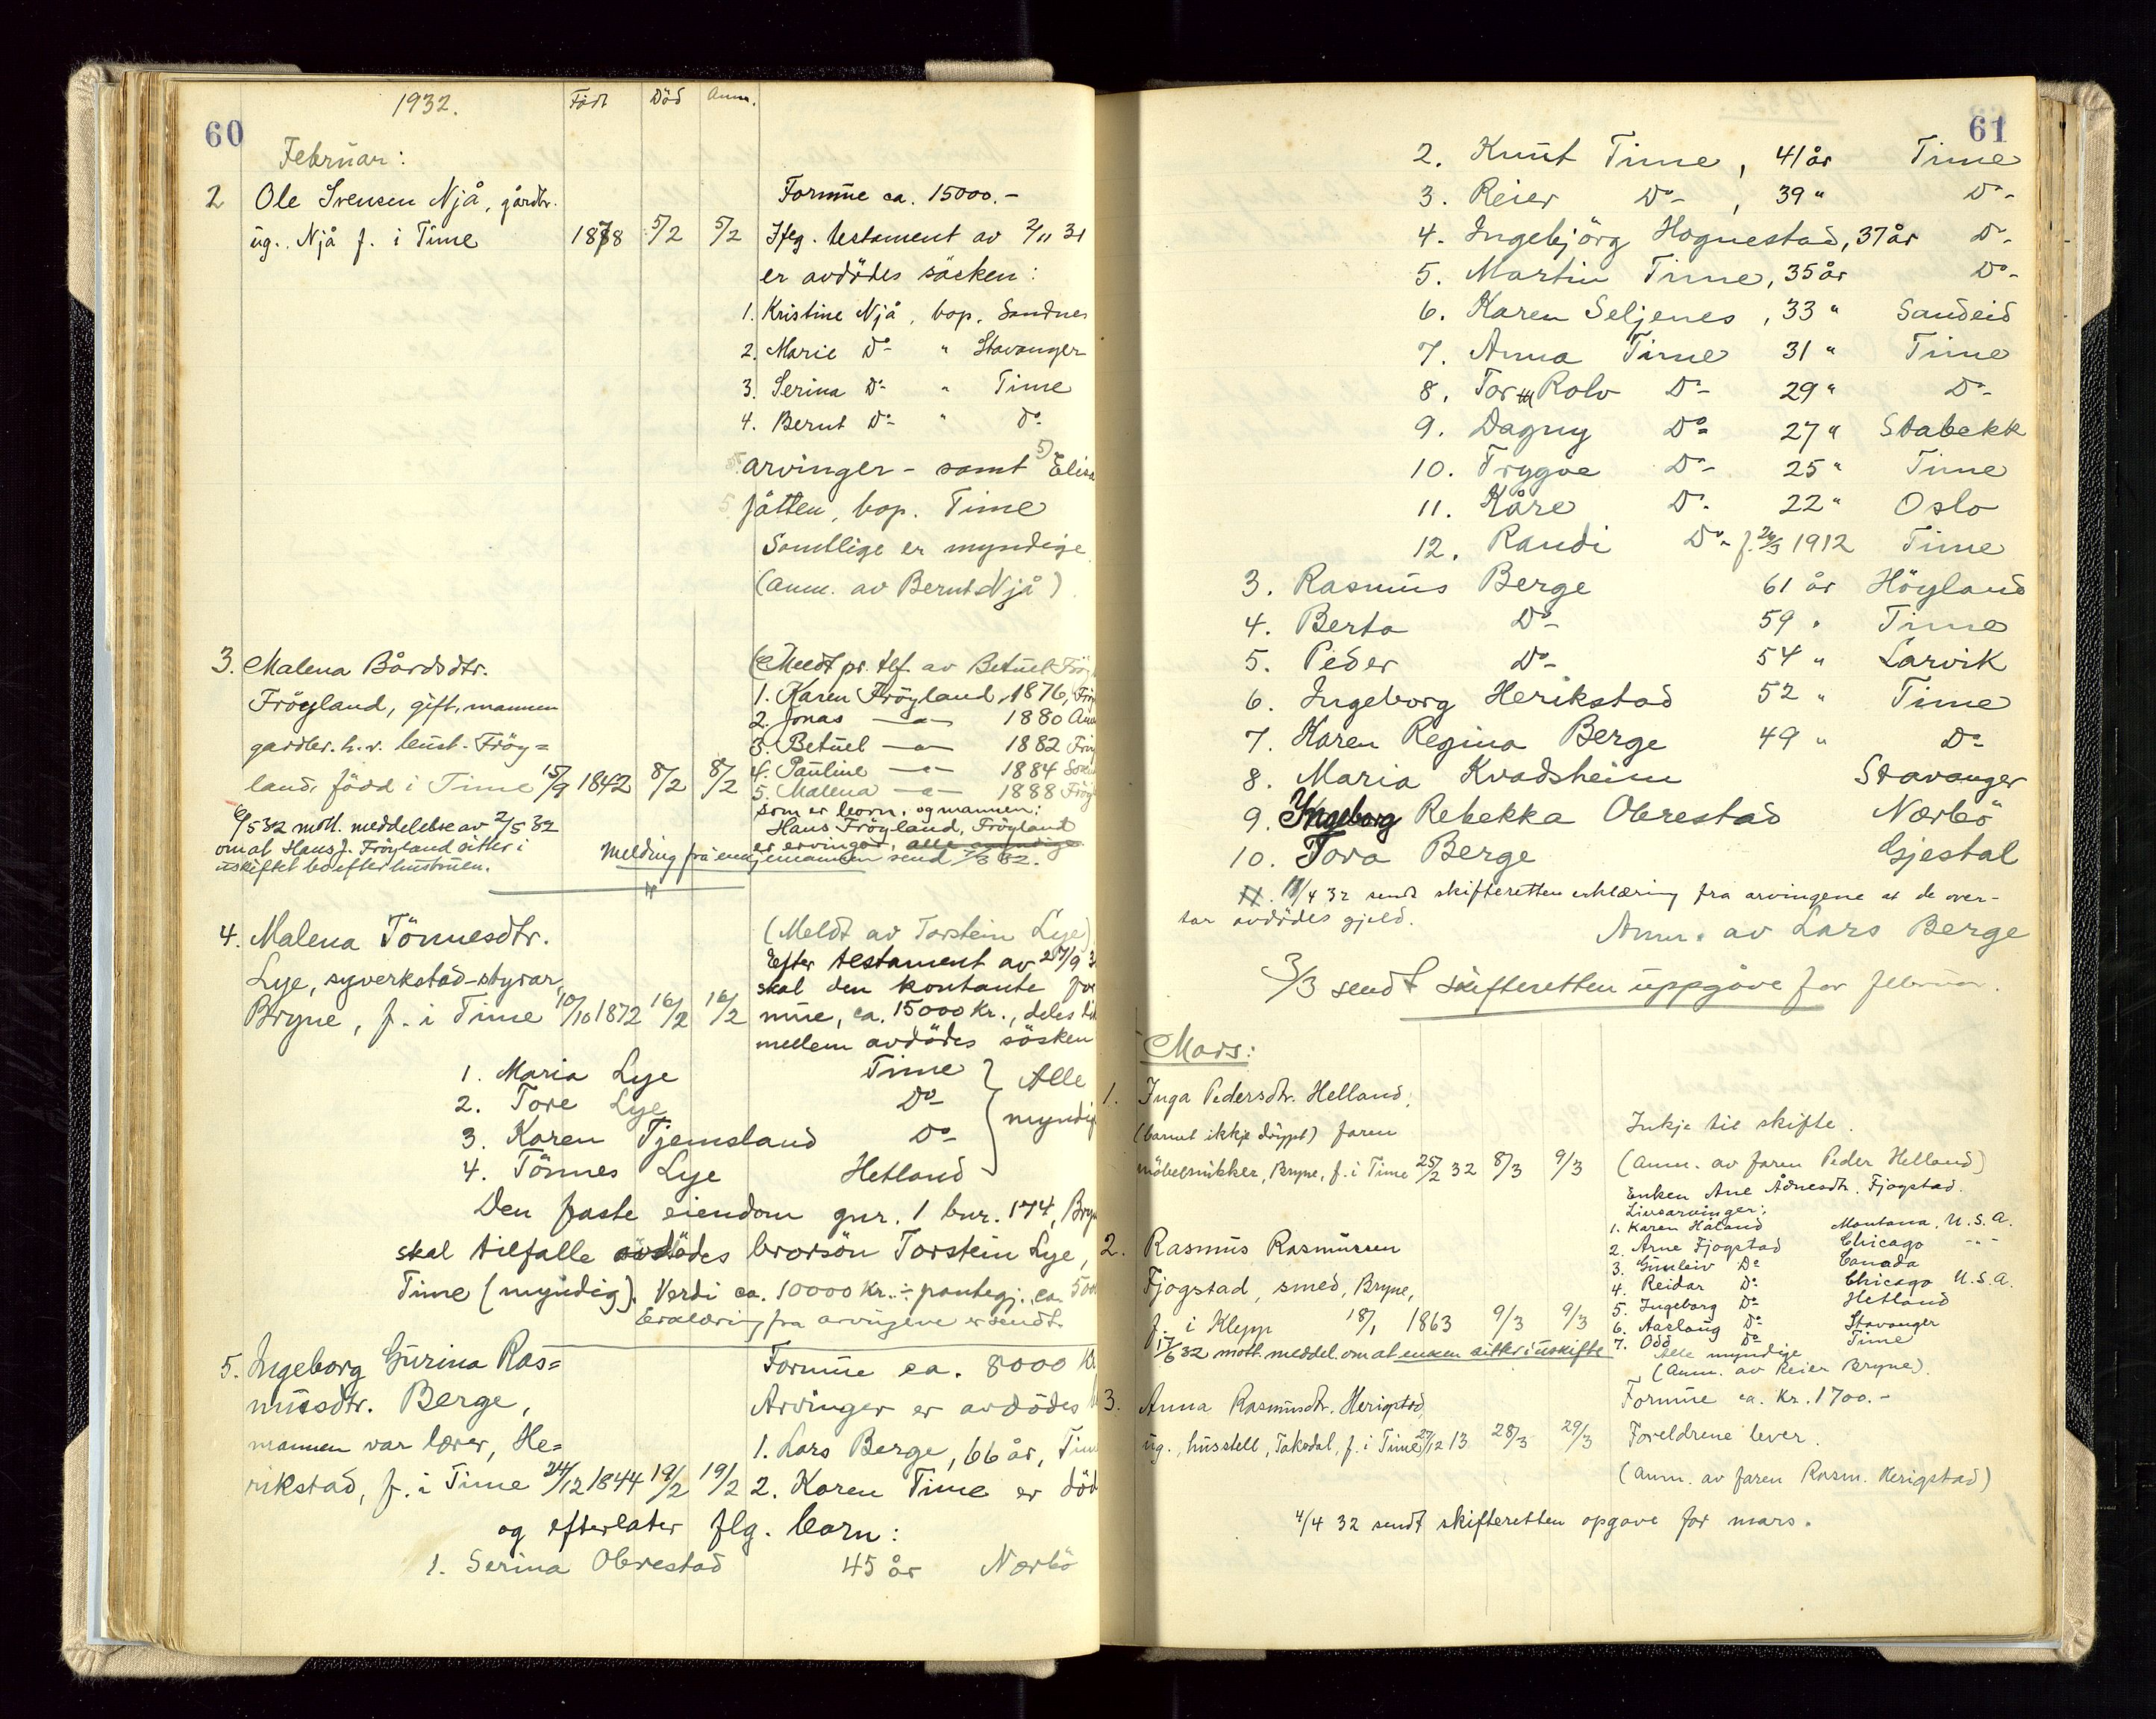 60
1932.
Född Död Anm.
Februar:
2 Ole Svensen Njå, gårdbr.
ug. Njå f. i Time 1878 5/2 5/2
Formue ca. 15000.-
Iflg. testament av 2/11 31
er avdödes söсken:
1. Kristine Njå, bop. Sandnes
2. Marie Do- " Stavanger
3. Serina Do- " Time
4. Bernt Do- " Do-
arvinger - samt 5) Elisa
Jåtten, bop. Time
Samtlige er myndige
(Anm. av Bernt Njå)
3. Malena Bårdsdtr.
Fröyland, gift, mannen
gardbr. h.v. bust. Fröy=
land, född i Time 15/9 1842 8/2 8/2
(Meldt pr. tlf. av Betuel Fröy
1. Karen Fröyland, 1876, Fröy
2. Jonas —"— 1880
3. Betuel —"— 1882 Fröy
4. Pauline —"— 1884
5. Malena —"— 1888 Fröy
som er born, og mannen:
Hans Fröyland, Fröyland
er ervingar, alle myndige
6/5 32 mott. meddelelse av 2/5 32
om at Hans J. Fröyland sitter i
uskiftet bo efter hustruen.
Melding frå enkjemannen send 7/3 32.
4. Malena Tönnesdtr.
Lye, syverkstad-styrar,
Bryne, f. i Time 10/10 1872 16/2 16/2
(Meldt av Torstein Lye)
Efter testament av 27/9 3
skal den kontante for
mue, ca. 15000 Kr., deles li
mellem avdödes sösken
1. Maria Lye Time
2. Tore Lye Do-
3. Karen Tjemsland Do-
4. Tönnes Lye Hetland
Alle
myndig
Den faste eiendom gnr. 1 bnr. 174, Bryn
skal tilfalle avdödes brorsön Torstein Lye,
Time (myndig). Verdi ca. 10000 Kr. ÷ pantegj. ca. 500
Erklæring fra arvingene er sendt.
5. Ingeborg Gurina Ras=
musdtr. Berge,
mannen var lærer, He=
rikstad, f. i Time 24/12 1844 19/2 19/2
Formue ca. 8000 Kr
Arvinger er avdödes
1. Lars Berge, 66 år, Tim
2. Karen Time er död
og efterlater flg. born:
1. Serina Obrestad 45 år Nærbö
61
2. Knut Time, 41 år Time
3. Reier Do-, 39 " Do-
4. Ingebjörg Hognestad, 37 år Do-
5. Martin Time, 35 år Do-
6. Karen Seljenes, 33 " Sandeid
7. Anna Time 31 " Time
8. Tor Rolv Do- 29 " Do-
9. Dagny Do- 27 " Stabekk
10. Trygve Do- 25 " Time
11. Kåre Do- 22 " Oslo
12. Randi Do- f. 26/3 1912 Time
3. Rasmus Berge 61 år Höyland
4. Berta Do- 59 " Time
5. Peder Do- 54 " Larvik
6. Ingeborg Herikstad 52 " Time
7. Karen Regina Berge 49 " Do-
8. Maria Kvadsheim Stavanger
9. Ingeborg Rebekka Obrestad Nærbö
10. Tora Berge Gjestal
11. 18/4 32 sendt skifteretten erklæring fra arvingene at de over-
tar avdödes gjeld.
Anm. av Lars Berge
3/3 sendt skifteretten uppgåve for februar.
Mars:
1. Inga Pedersdtr. Helland,
(barnet ikkje döypt) faren
möbelsnikker, Bryne, f. i Time 25/2 32 8/3 9/3
Inkje til skifte.
(Anm. av faren Peder Helland)
2. Rasmus Rasmussen
Fjogstad, smed, Bryne,
f. i Klepp 18/1 1863 9/3 9/3
17/6 32 mott. meddel. om at enken sitter i uskifte
Enken Ane Ådnesdtr. Fjogstad.
Livsarvinger:
1. Karen Håland Montana, U.S.A.
2. Arne Fjogstad Chicago -"-
3. Gunleiv Do Canada
4. Reidar Do- Chicago U.S.A.
5. Ingeborg Do- Hetland
6. Aaslaug Do- Stavanger
7. Odd Do Time
Alle myndige
(Anm. av Reier Bryne).
3. Anna Rasmusdtr. Herigstad,
ug., husstell, Taksdal, f. i Time 27/12 13 28/3 29/3
Formue ca. Kr. 1700.-
Foreldrene lever.
(Anm. av faren Rasm. Herigstad)
4/4 32 sendt skifteretten opgave for mars.